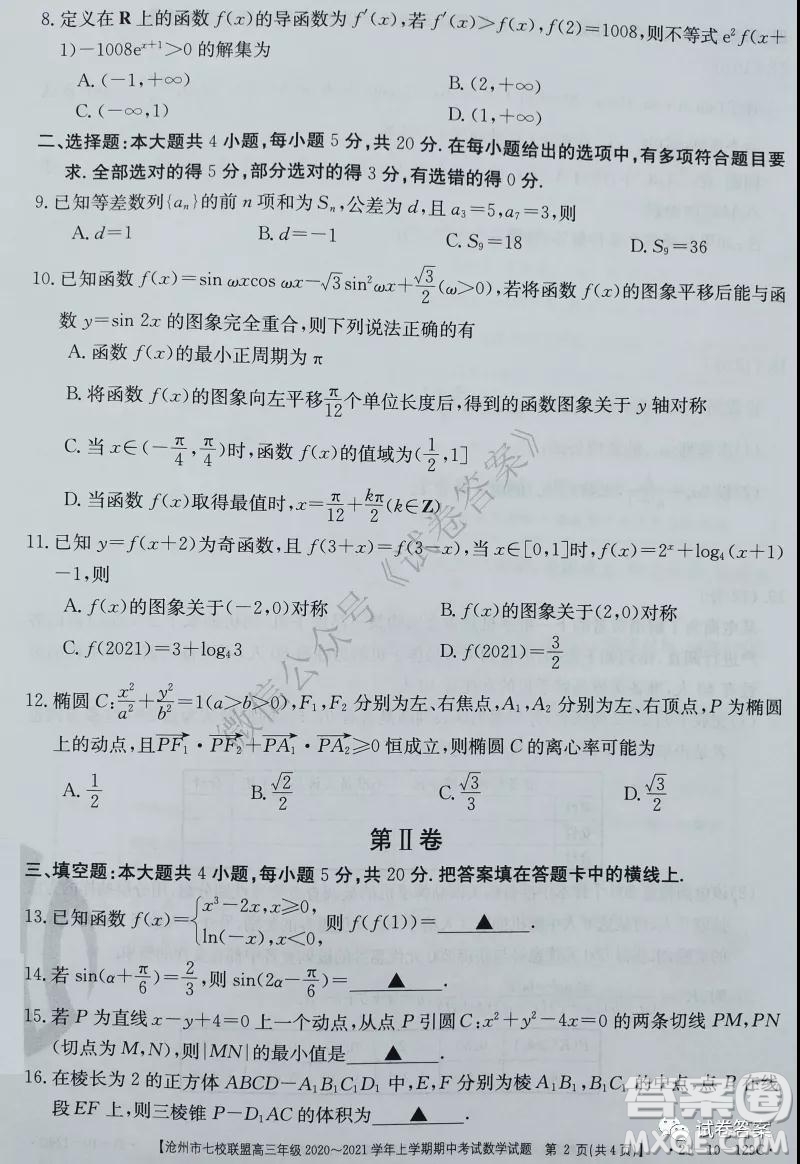 8. 定义在 R 上的函数 f(x)的导函数为 f′(x),若 f′(x)>f(x),f(2)=1008,则不等式 e²f(x+
1)-1008eˣ⁺¹>0 的解集为
A. (-1,+∞) B. (2,+∞)
C. (-∞,1) D. (1,+∞)
二、选择题:本大题共 4 小题,每小题 5 分,共 20 分. 在每小题给出的选项中,有多项符合题目要
求. 全部选对的得 5 分,部分选对的得 3 分,有选错的得 0 分.
9. 已知等差数列{aₙ}的前 n 项和为 Sₙ,公差为 d,且 a₃=5,a₇=3,则
A. d=1 B. d=-1 C. S₉=18 D. S₉=36
10. 已知函数 f(x)=sin ωxcos ωx-√3sin²ωx+√3/2(ω>0),若将函数 f(x)的图象平移后能与函
数 y=sin 2x 的图象完全重合,则下列说法正确的有
A. 函数 f(x)的最小正周期为 π
B. 将函数 f(x)的图象向左平移π/12个单位长度后,得到的函数图象关于 y 轴对称
C. 当 x∈(-π/4,π/4)时,函数 f(x)的值域为(1/2,1]
D. 当函数 f(x)取得最值时,x=π/12+kπ/2(k∈Z)
11. 已知 y=f(x+2)为奇函数,且 f(3+x)=f(3-x),当 x∈[0,1]时,f(x)=2ˣ+log₄(x+1)
-1,则
A. f(x)的图象关于(-2,0)对称 B. f(x)的图象关于(2,0)对称
C. f(2021)=3+log₄3 D. f(2021)=3/2
12. 椭圆 C:x²/a²+y²/b²=1(a>b>0),F₁,F₂ 分别为左、右焦点,A₁,A₂ 分别为左、右顶点,P 为椭圆
上的动点,且PF₁·PF₂+PA₁·PA₂≥0 恒成立,则椭圆 C 的离心率可能为
A. 1/2 B. √2/2 C. √3/3 D. √3/2
第Ⅱ卷
三、填空题:本大题共 4 小题,每小题 5 分,共 20 分. 把答案填在答题卡中的横线上.
13. 已知函数 f(x)={x³-2x,x≥0, ln(-x),x<0, 则 f(f(1))= ▲ .
14. 若 sin(α+π/6)=2/3,则 sin(2α-π/6)= ▲ .
15. 若 P 为直线 x-y+4=0 上一个动点,从点 P 引圆 C:x²+y²-4x=0 的两条切线 PM,PN
(切点为 M,N),则|MN|的最小值是 ▲ .
16. 在棱长为 2 的正方体 ABCD-A₁B₁C₁D₁ 中,E,F 分别为棱 A₁B₁,B₁C₁ 的中点,点 P 在线
段 EF 上,则三棱锥 P-D₁AC 的体积为 ▲ .
【沧州市七校联盟高三年级 2020~2021 学年上学期期中考试数学试题 第 2 页(共 4 页)】
微信公众号《试卷答案》
答案圈
试卷答案
MXQE.COM